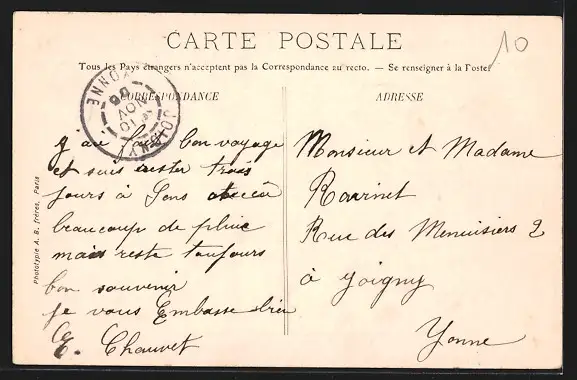 10
CARTE POSTALE
Tous les Pays étrangers n'acceptent pas la Correspondance au recto. — Se renseigner à la Poste
CORRESPONDANCE
ADRESSE
JOIGNY YONNE
10 NOV 06
j'ai fait bon voyage
et suis rester trois
jours à Sens
beaucoup de pluie
mais reste toujours
bon souvenir
je vous Embasse bien
E. Chauvet
Monsieur et Madame
Ravinet
Rue des Menuisiers 2
à Joigny
Yonne
Phototypie A. B. frères, Paris